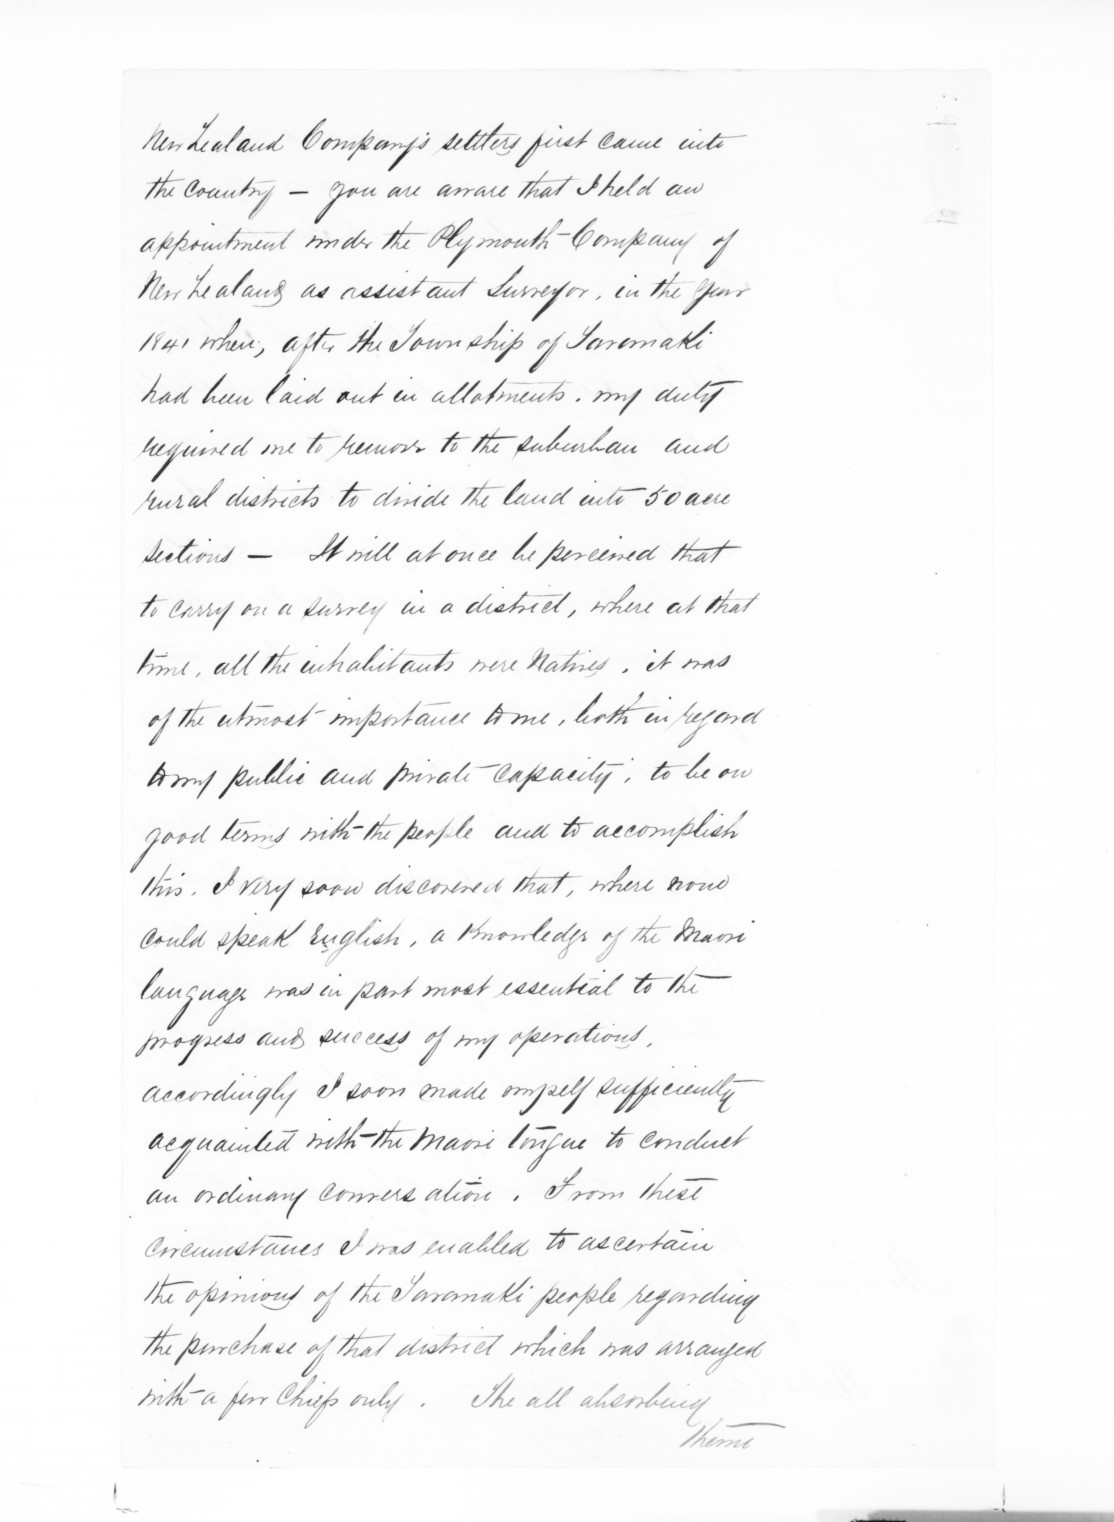 New Zealand Company's settlers first came into
the country — you are aware that I held an
appointment under the Plymouth Company of
New Zealand as assistant Surveyor, in the year
1841 when, after the Township of Taranaki
had been laid out in allotments, my duty
required me to remove to the suburban and
rural districts to divide the land into 50 acre
sections — It will at once be perceived that
to carry on a survey in a district, where at that
time, all the inhabitants were Natives, it was
of the utmost importance to me, both in regard
to my public and private capacity, to be on
good terms with the people and to accomplish
this. I very soon discovered that, where none
could speak English, a knowledge of the Maori
language was in part most essential to the
progress and success of my operations,
accordingly I soon made myself sufficiently
acquainted with the Maori tongue to conduct
an ordinary conversation. From these
circumstances I was enabled to ascertain
the opinions of the Taranaki people regarding
the purchase of that district which was arranged
with a few Chiefs only. The all absorbing
theme